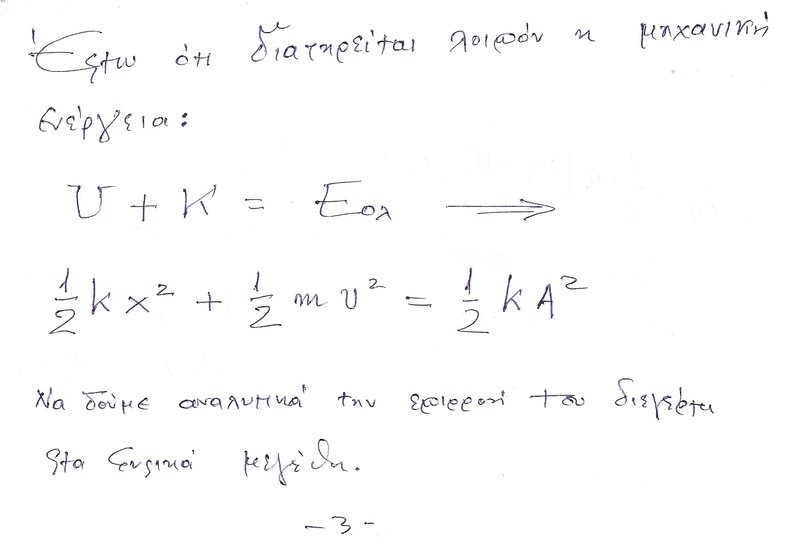 Έστω ότι διατηρείται λοιπόν η μηχανική
ενέργεια:
U + K = Eολ ⟹
1/2 k x² + 1/2 m υ² = 1/2 k A²
Να δούμε αναλυτικά την επιρροή του διεγέρτη
στα φυσικά μεγέθη.
- 3 -